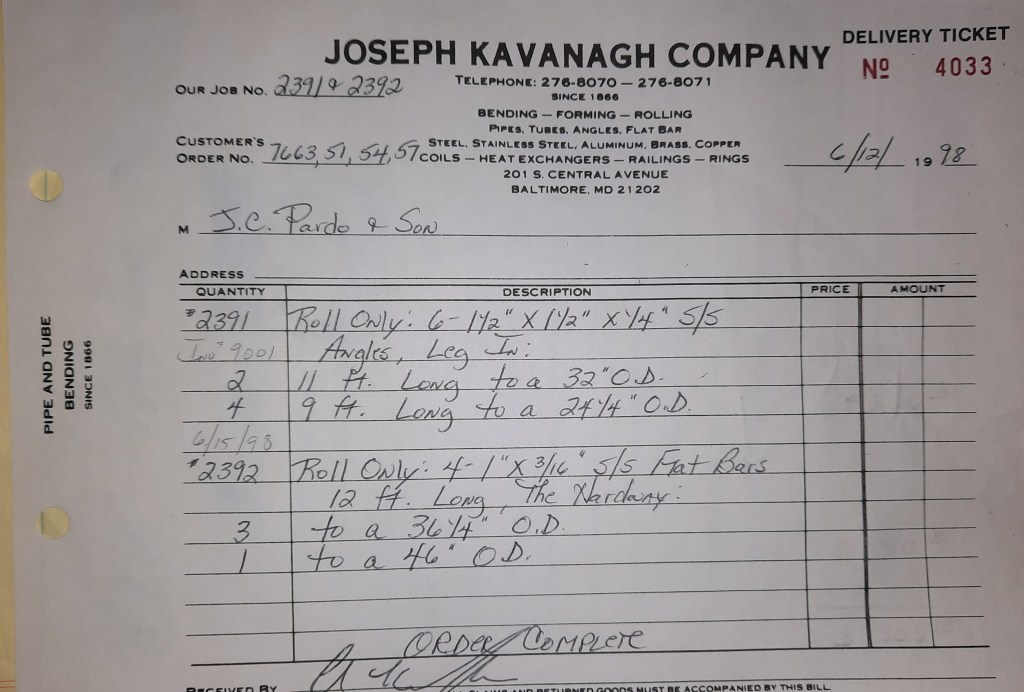 DELIVERY TICKET
JOSEPH KAVANAGH COMPANY
Nº 4033
OUR JOB NO. 2391 & 2392
TELEPHONE: 276-8070 — 276-8071
SINCE 1866
BENDING — FORMING — ROLLING
PIPES, TUBES, ANGLES, FLAT BAR
CUSTOMER'S ORDER NO. 7663, 51, 54, 57
STEEL, STAINLESS STEEL, ALUMINUM, BRASS, COPPER
COILS — HEAT EXCHANGERS — RAILINGS — RINGS
6/12/ 1998
201 S. CENTRAL AVENUE
BALTIMORE, MD 21202
M J.C. Pardo & Son
ADDRESS
QUANTITY DESCRIPTION PRICE AMOUNT
#2391 Roll Only: 6 - 1 1/2" X 1 1/2" X 1/4" S/S
Inv# 9001 Angles, Leg In:
2 11 ft. Long to a 32" O.D.
4 9 ft. Long to a 24 1/4" O.D.
6/15/98
#2392 Roll Only: 4 - 1" X 3/16" S/S Flat Bars
12 ft. Long, The Hardway:
3 to a 36 1/4" O.D.
1 to a 46" O.D.
ORDER COMPLETE
RECEIVED BY
CLAIMS AND RETURNED GOODS MUST BE ACCOMPANIED BY THIS BILL
PIPE AND TUBE
BENDING
SINCE 1866